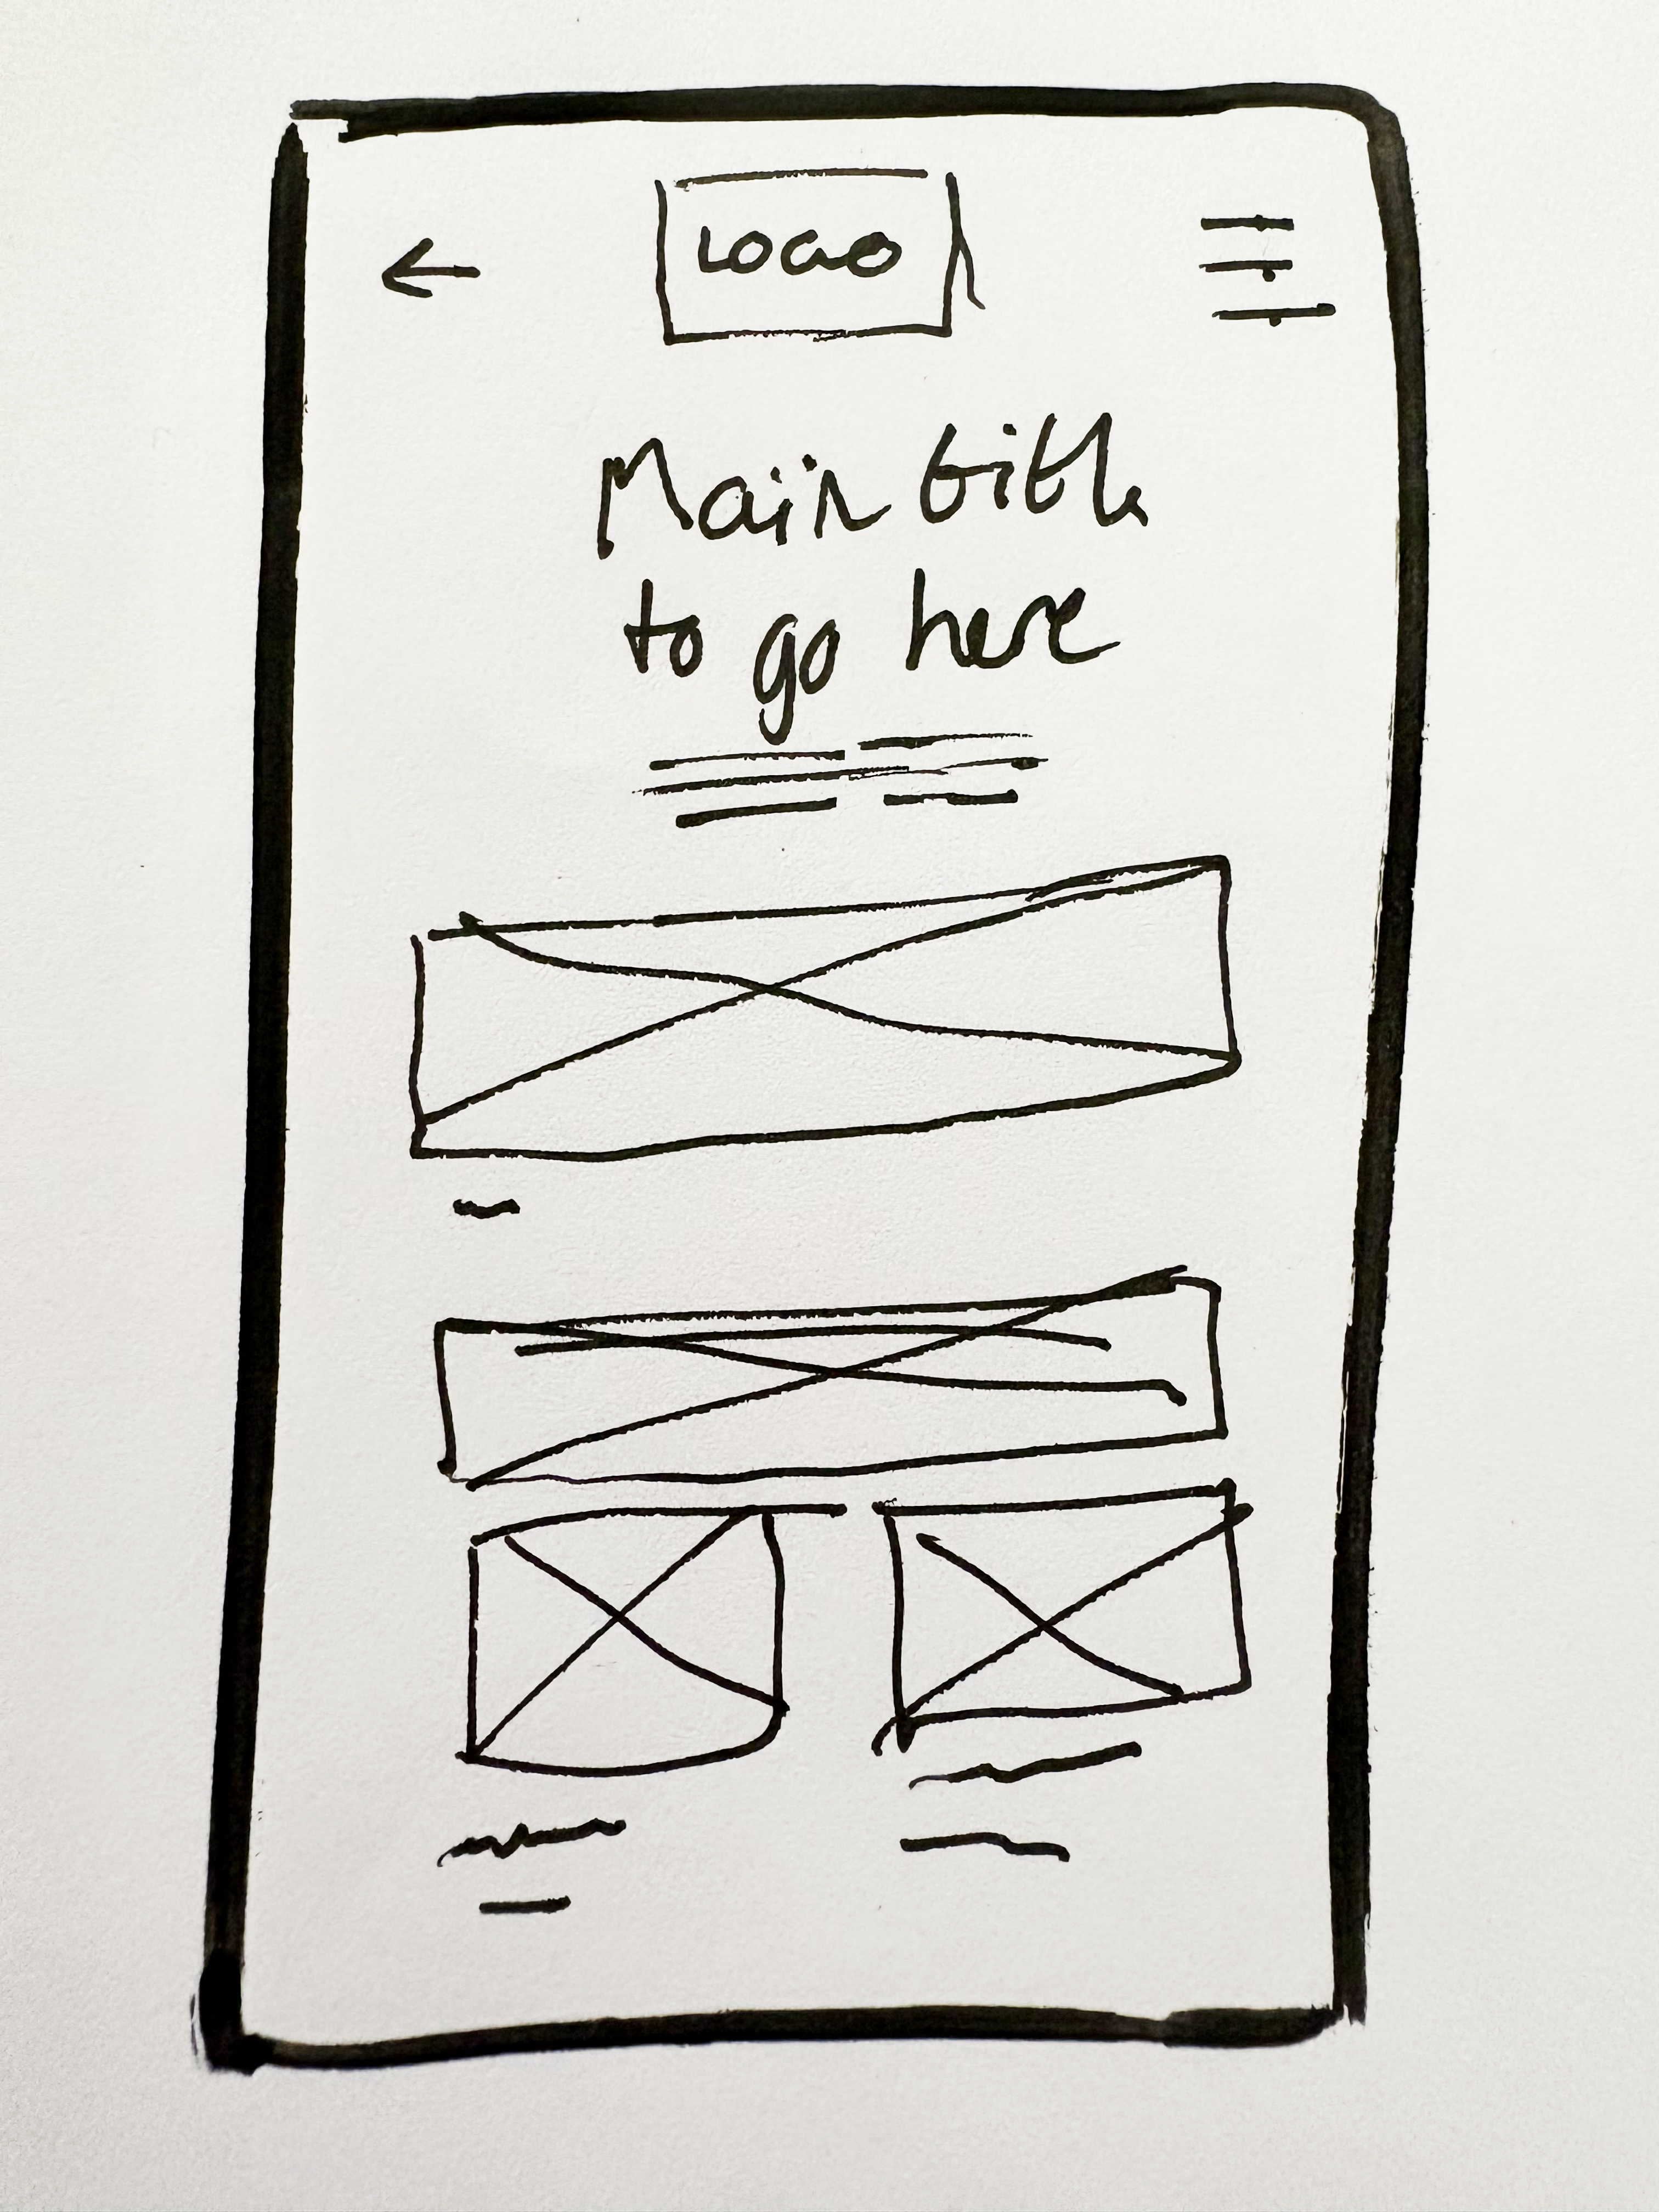 LOGO
Main title
to go here